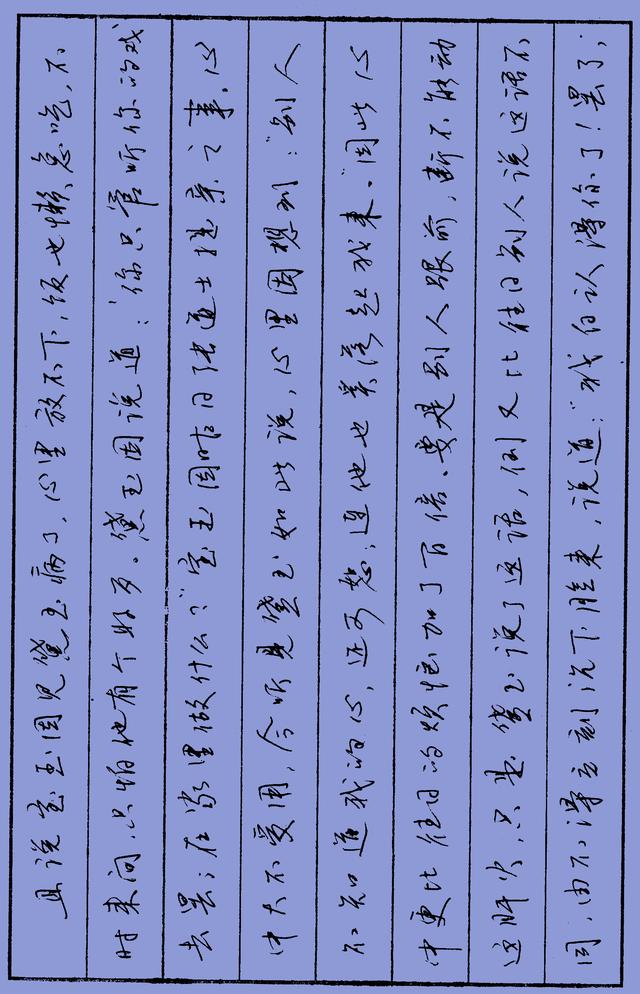 且说宝玉因见黛玉病了，心里放不下，饭也懒怠吃，不
时来问，只怕他有个好歹。黛玉因说道：“你只管听你的戏
去罢；在家里做什么？”宝玉因昨日张道士提亲之事，心
中大不受用，今听见黛玉如此说，心里因想到：“别人
不知道我的心，还可恕；连他也奚落起我来。”因此心
中更比往日的烦恼加了百倍。要是别人跟前，断不能动
这肝火，只是黛玉说了这话，倒又比往日别人说这话不
同，由不得立刻沉下脸来，说道：“我白认得你了！罢了，